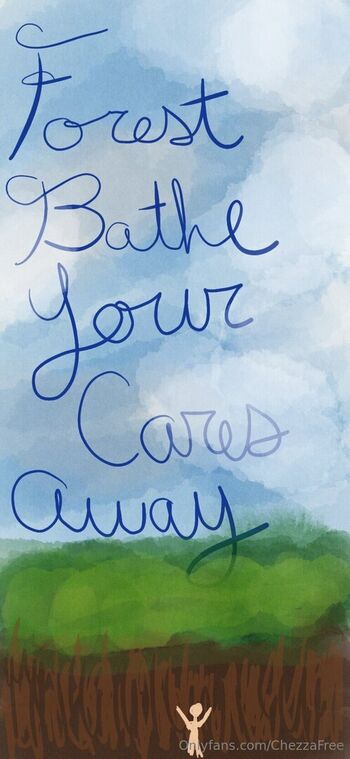 Forest
Bathe
Your
Cares
Away
Onlyfans.com/ChezzaFree